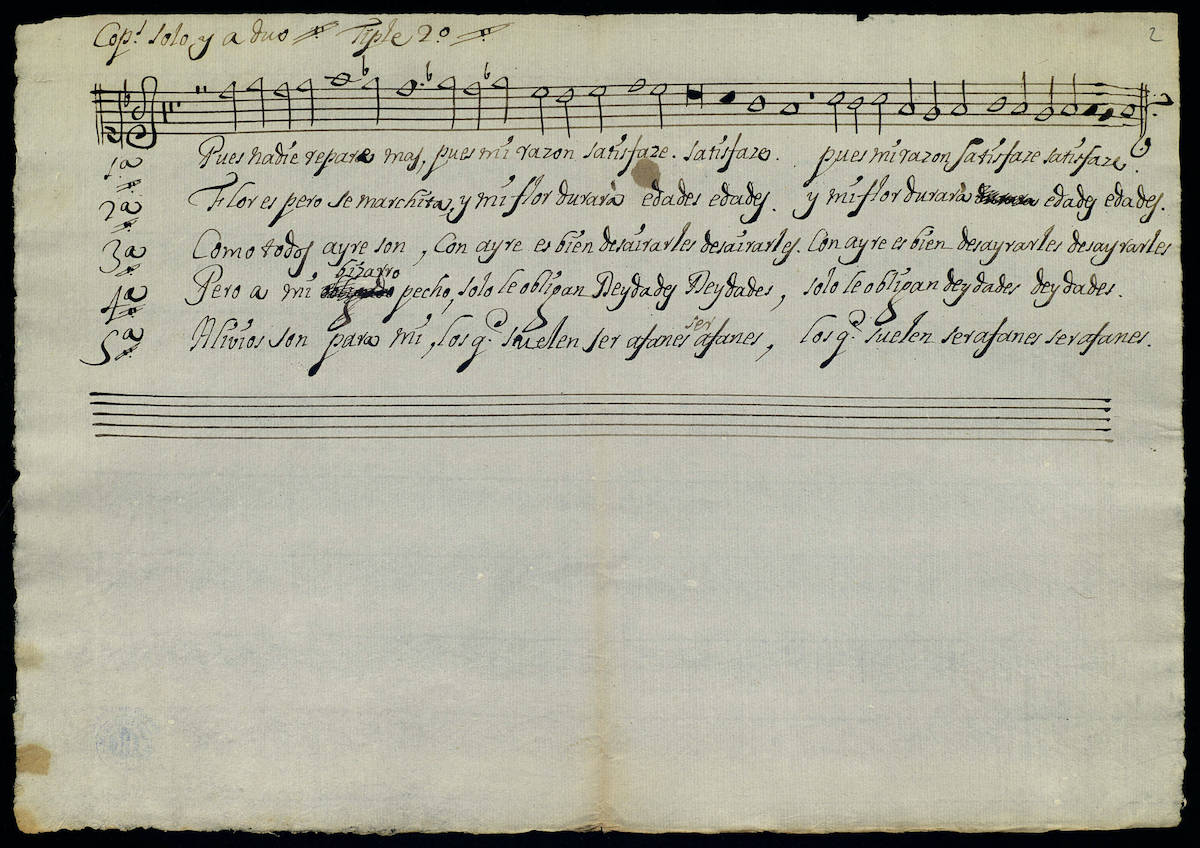 Cop.s solo, y a duo Tiple 2.o
2
1.a Pues nadie repare mas, pues mi razon satisfaze. satisfaze. pues mi razon satisfaze satisfaze.
2.a Flor es pero se marchita, y mi flor durarà edades edades. y mi flor durarà edades edades.
3.a Como todos ayre son, con ayre es bien desairarles desairarles. Con ayre es bien desayrarles desayrarles
4.a Pero a mi bizarro pecho, solo le obligan Deydades Deydades, solo le obligan deydades deydades.
5.a Alivios son para mi, los q.e suelen ser afanes ser afanes, los q.e suelen ser afanes ser afanes.